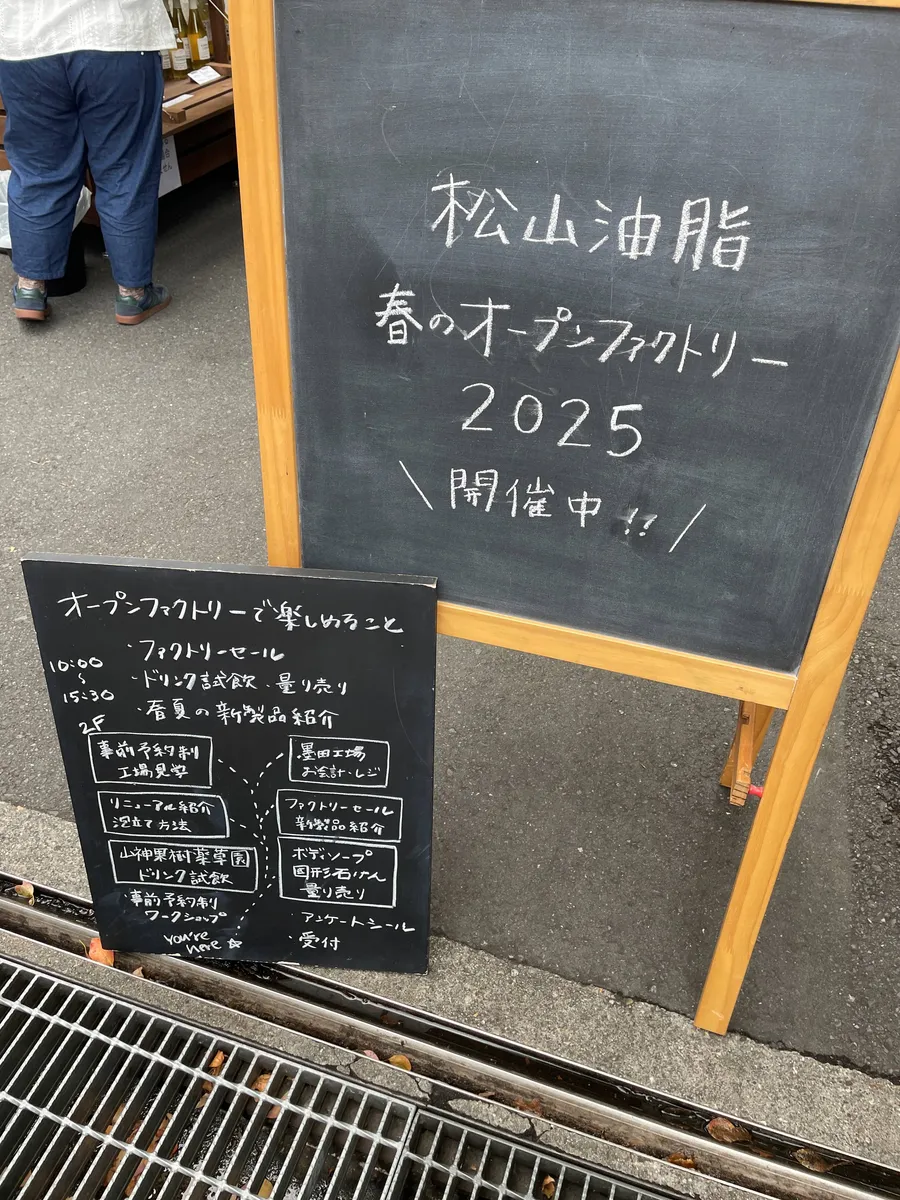 松山油脂
春のオープンファクトリー
2025
\ 開催中!! /
オープンファクトリーで楽しめること
10:00
~
15:30
・ファクトリーセール
・ドリンク試飲・量り売り
・春夏の新製品紹介
2F
事前予約制
工場見学
墨田工場
お会計・レジ
リニューアル紹介
泡立て方法
ファクトリーセール
新製品紹介
山神果樹薬草園
ドリンク試飲
ボディソープ
固形石けん
量り売り
事前予約制
ワークショップ
・アンケートシール
・受付
you're
here ☆